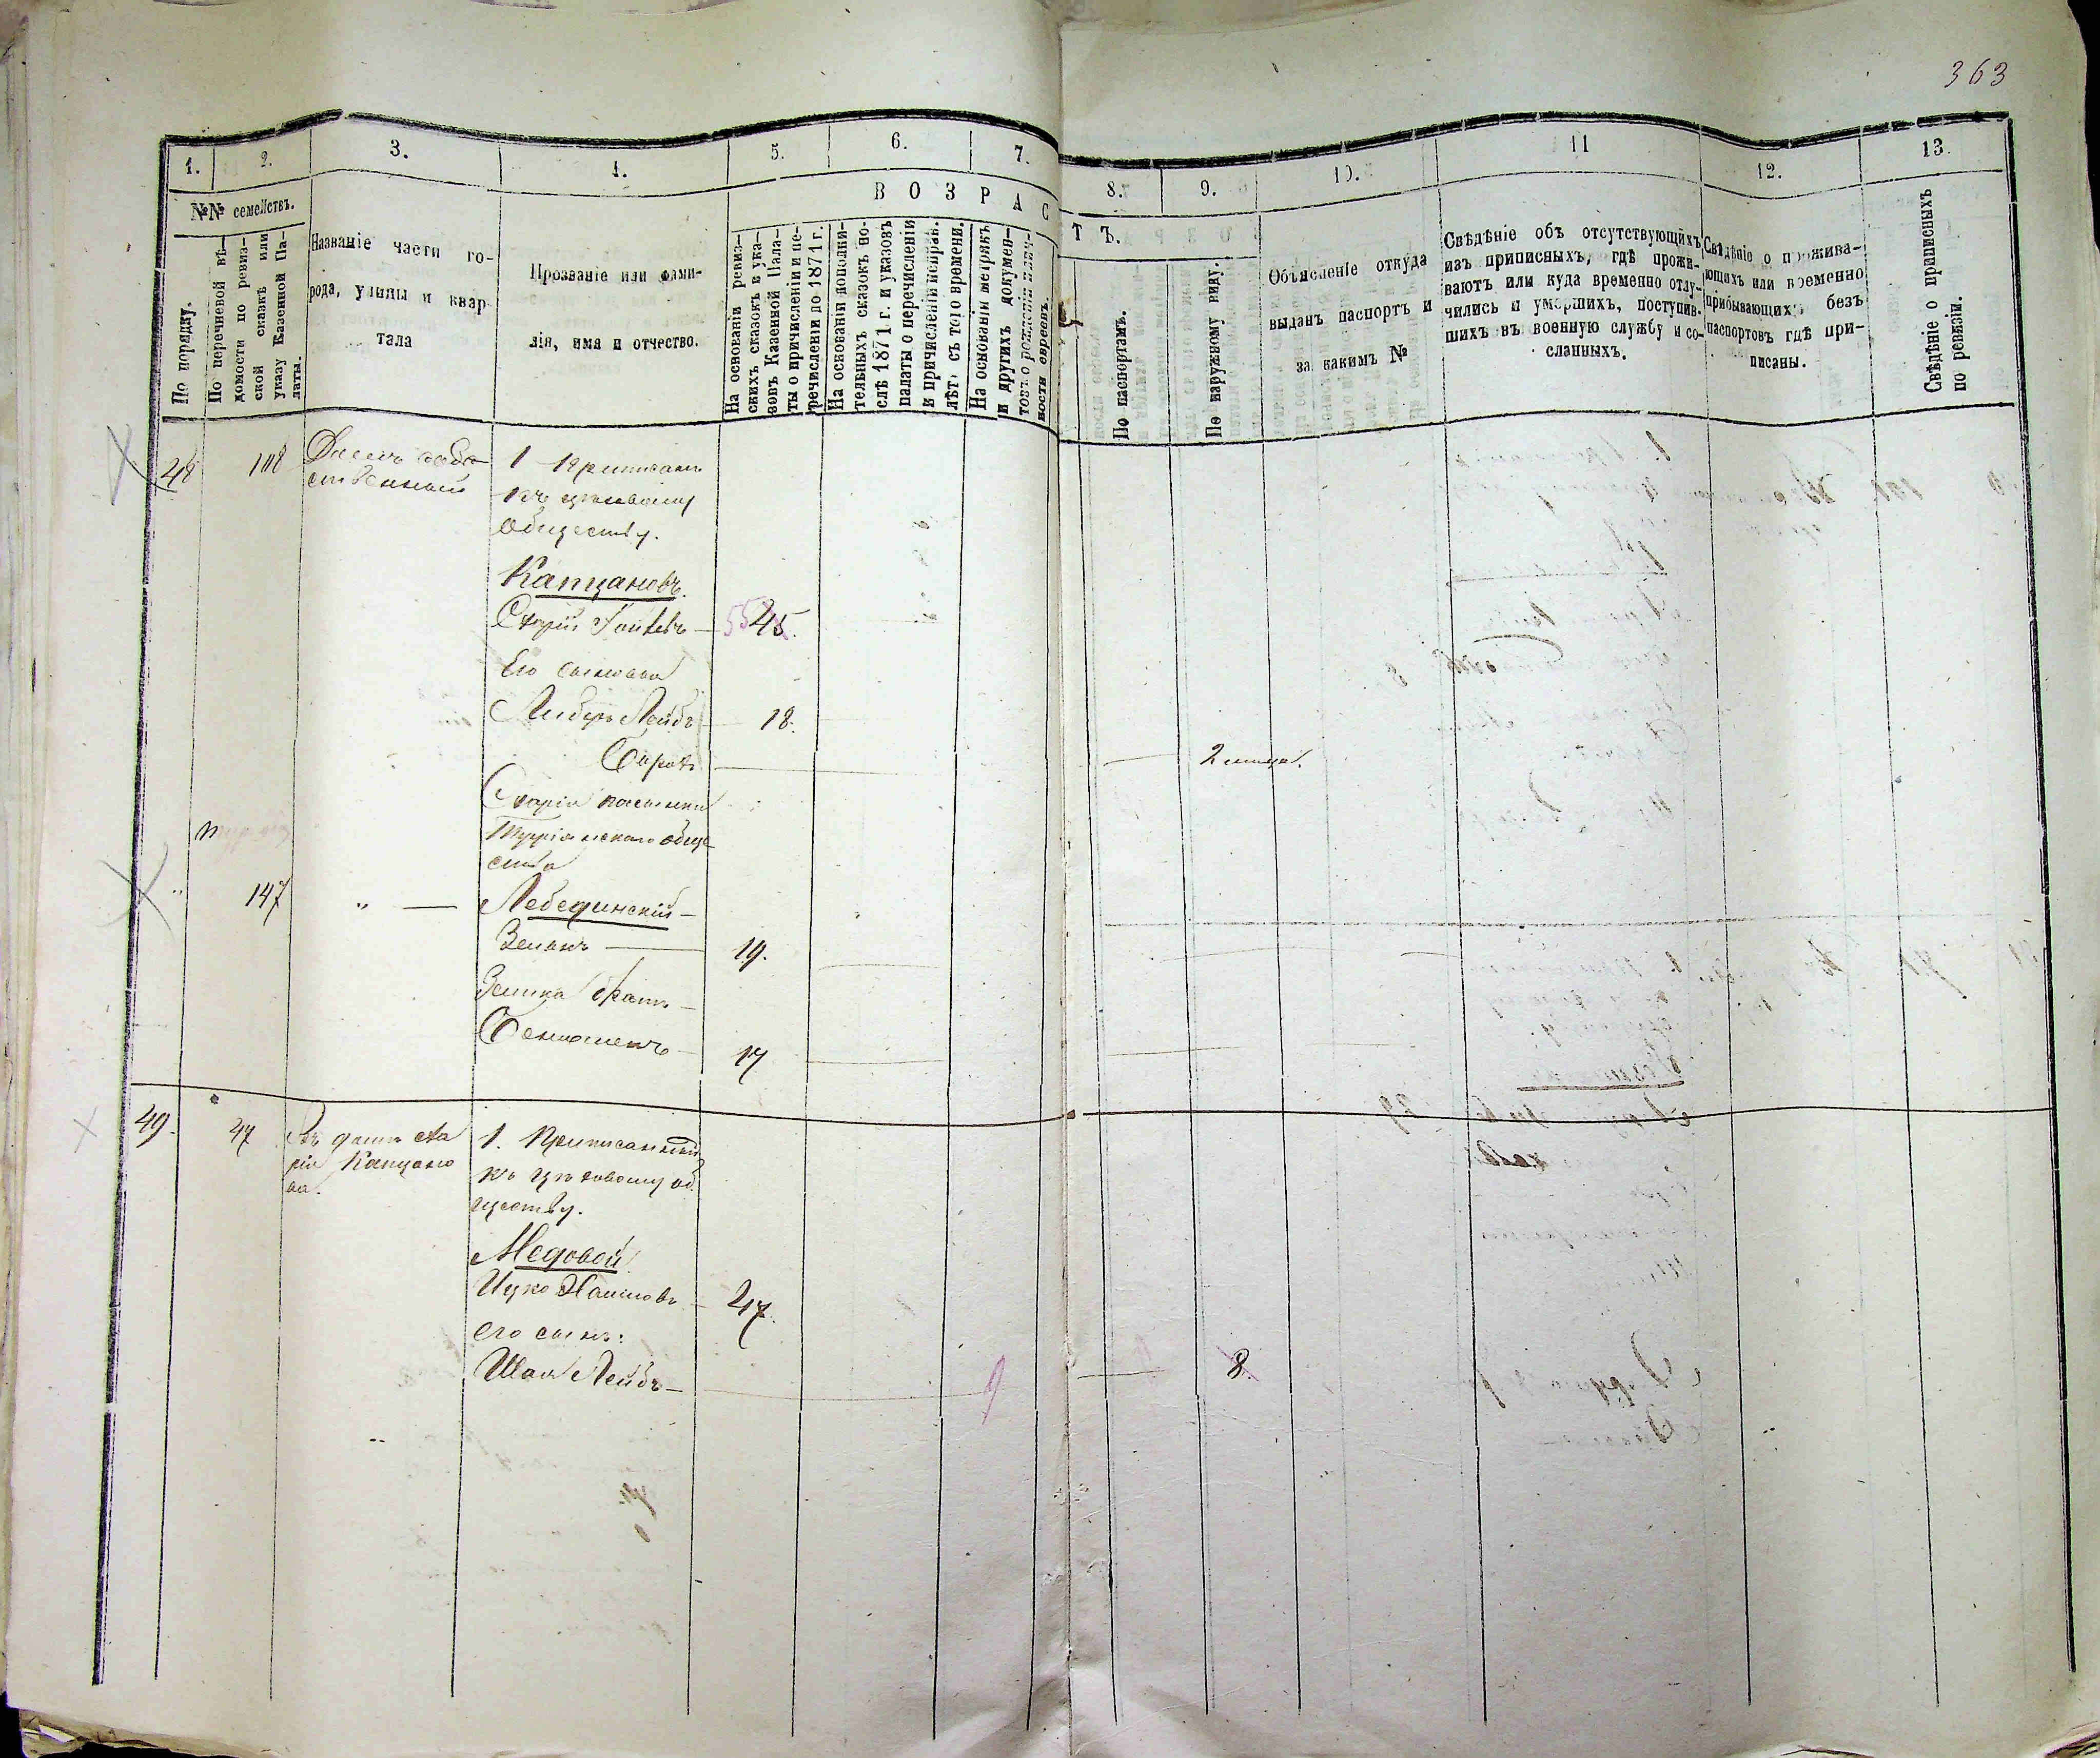 363
1.
2.
3.
4.
5.
6.
7.
8.
9.
10.
11
12.
13.
№№ семействъ.
В О З Р А С Т Ъ.
По порядку.
По перечневой вѣ-
домости по ревиз-
ской сказкѣ или
указу Казенной Па-
латы.
Названіе части го-
рода, улицы и квар
тала
Прозваніе или фами-
лія, имя и отчество.
На основаніи ревиз-
скихъ сказокъ и ука-
зовъ Казенной Пала-
ты о причисленіи и пе-
речисленіи до 1871 г.
На основаніи дополни-
тельныхъ сказокъ по-
слѣ 1871 г. и указовъ
палаты о перечисленіи
и причисленіи неправ.
лѣтъ съ того времени.
На основаніи метрикъ
и другихъ докумен-
товъ о рожденіи и лич-
ности евреевъ.
По паспортамъ.
По наружному виду.
Объясненіе откуда
выданъ паспортъ и
за какимъ №
Свѣдѣніе объ отсутствующихъ
изъ приписныхъ, гдѣ прожи-
ваютъ или куда временно отлу-
чились и умершихъ, поступив-
шихъ въ военную службу и со-
сланныхъ.
Свѣдѣніе о прожива-
ющихъ или временно
прибывающихъ безъ
паспортовъ гдѣ при-
писаны.
Свѣдѣніе о приписныхъ
по ревизіи.
48
Домъ соб-
ственный
1 Приписан
къ цеховому
обществу.
Капцановъ.
45.
Его сыновья
Лейбъ
18.
2 мѣсяц.
общe-
ства
147
"
"
Лебединскій
Зельикъ
19.
братъ
17
49.
47
Въ домѣ
Капцано
ва.
1. Приписанный
къ цеховому об
ществу.
Медовой
Ицко Хаимовъ
47
его сынъ:
Лейбъ
9
8.